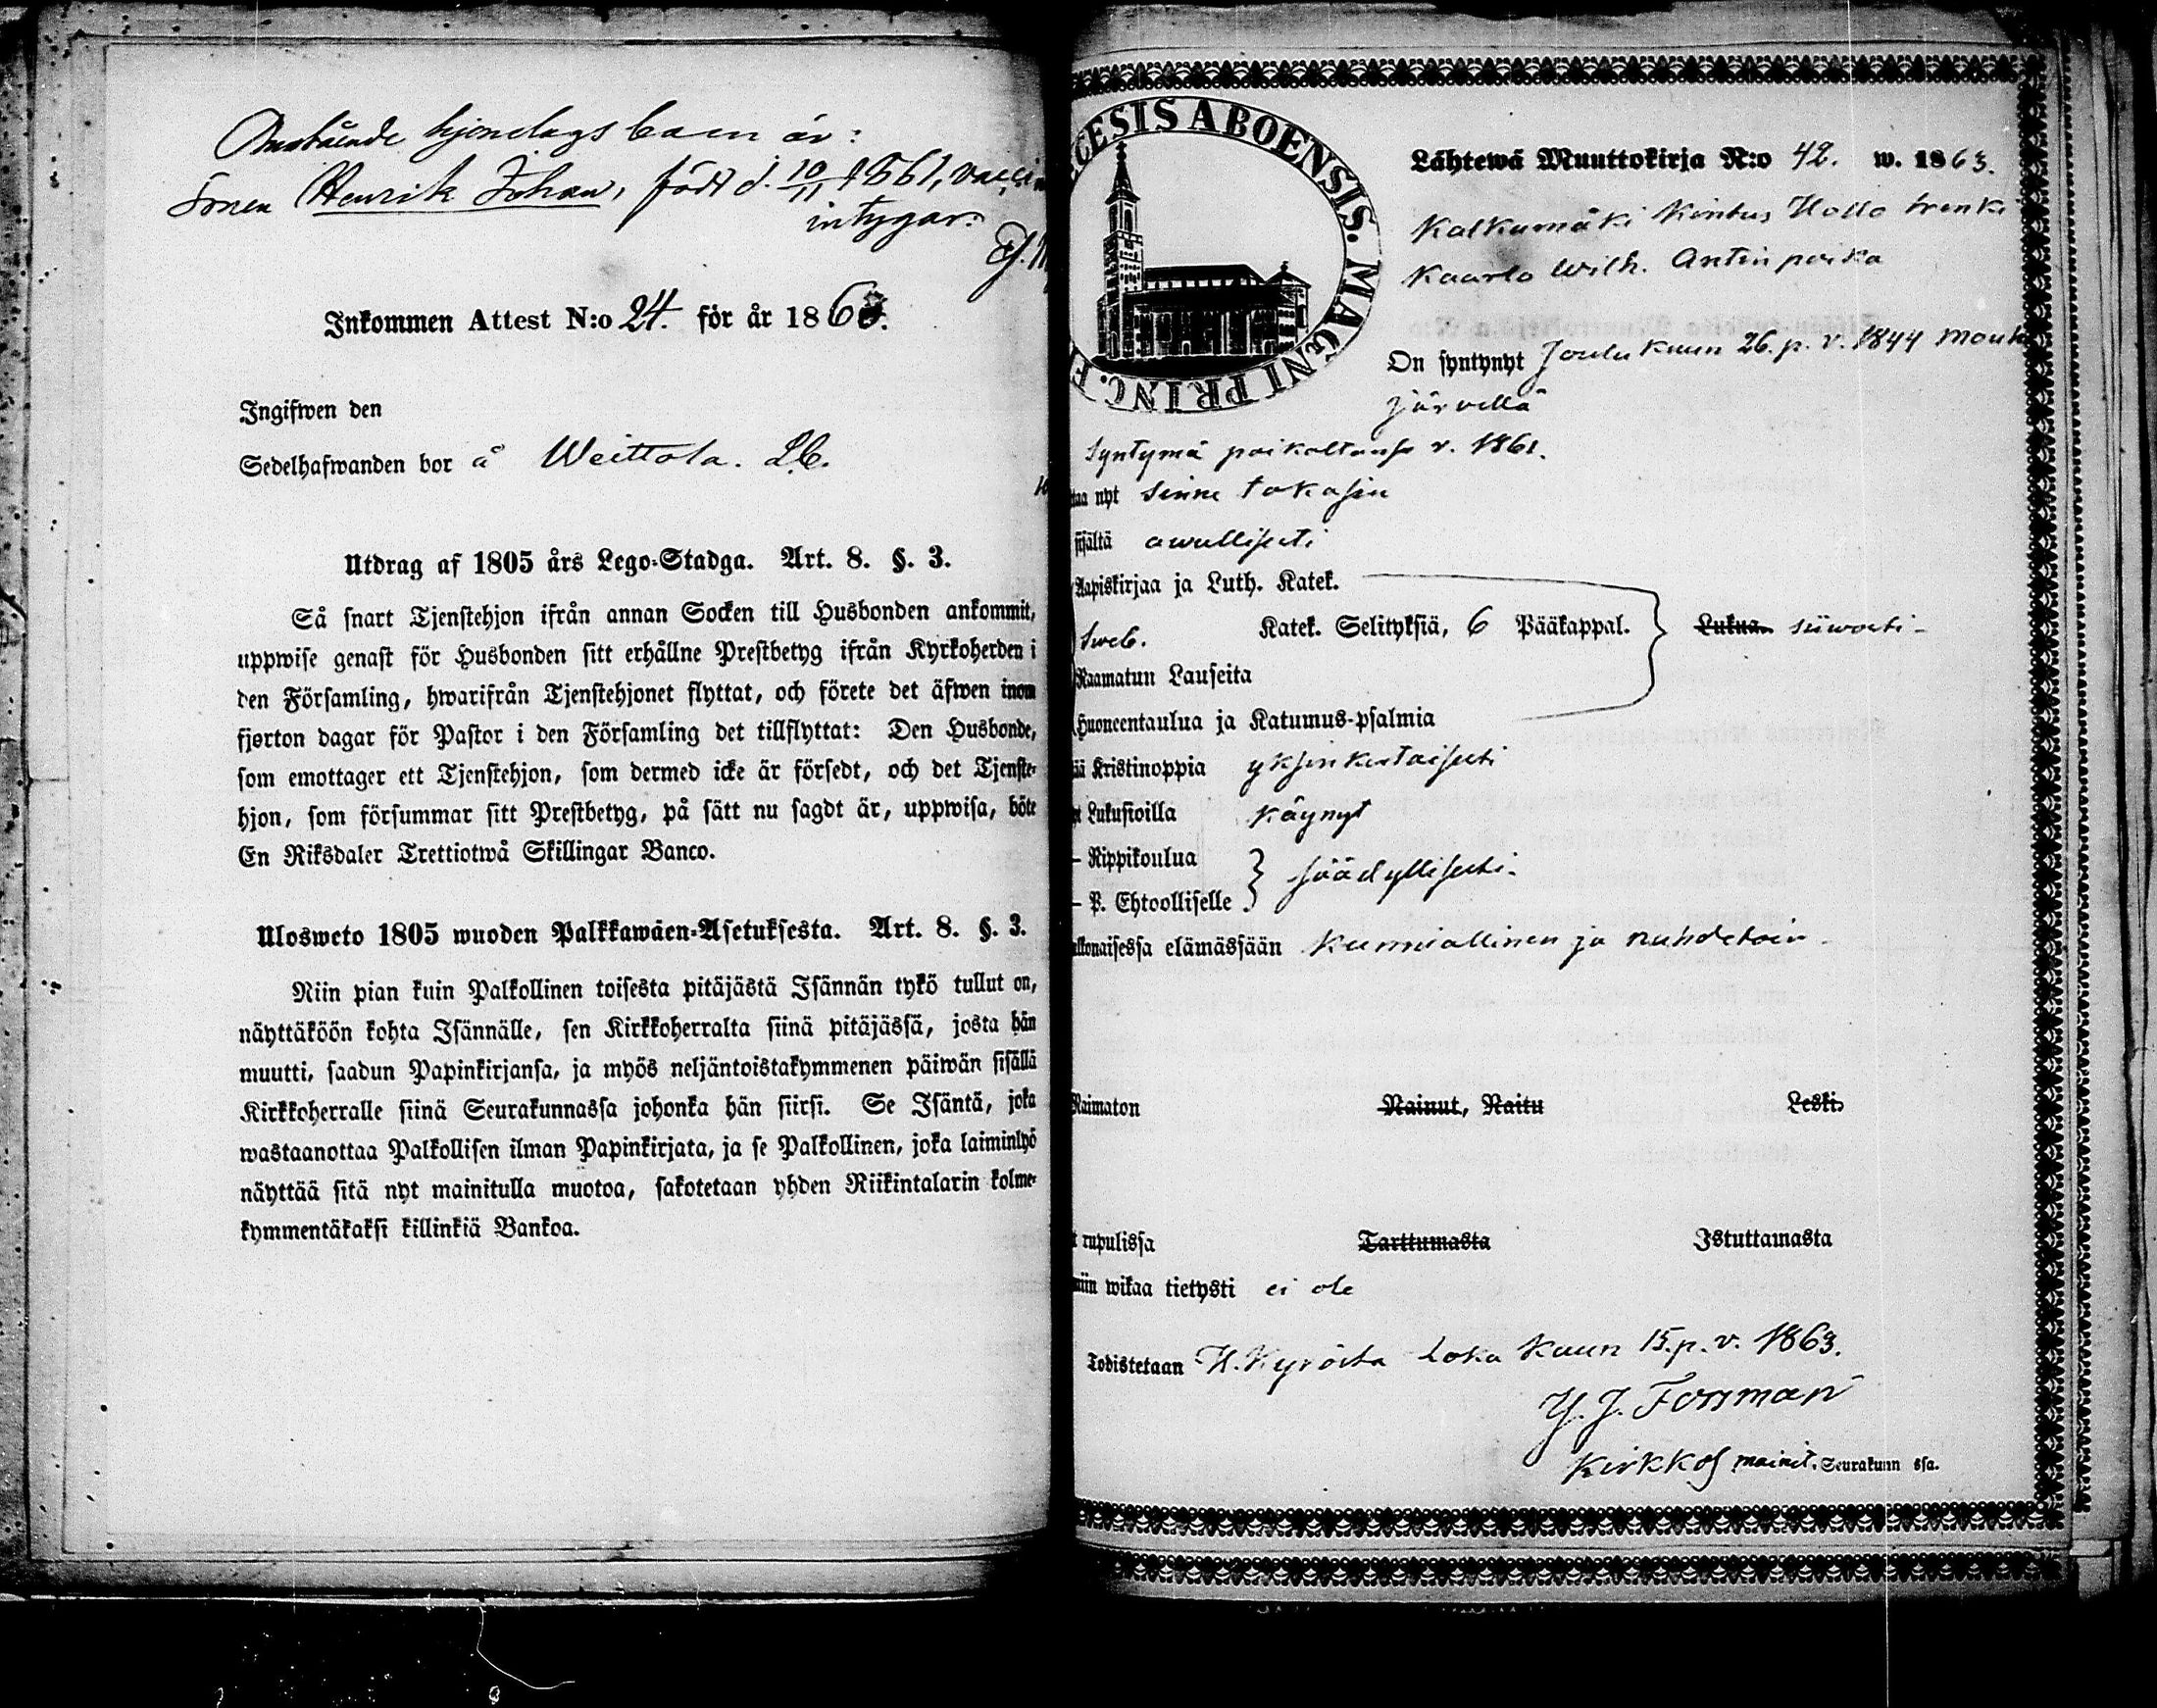 hjonelags barn är:
Sonen Henrik Johan, född d. 10/11 1861, vacci
intygar:
Inkommen Attest N:o 24. för år 186
Ingifwen den
Sedelhafwanden bor å Weittola.
Utdrag af 1805 års Lego-Stadga. Art. 8. §. 3.
Så snart Tjenstehjon ifrån annan Socken till Husbonden ankommit,
uppwise genast för Husbonden sitt erhållne Prestbetyg ifrån Kyrkoherden i
den Församling, hwarifrån Tjenstehjonet flyttat, och förete det äfwen inom
fjorton dagar för Pastor i den Församling det tillflyttat: Den Husbonde,
som emottager ett Tjenstehjon, som dermed icke är försedt, och det Tjenste-
hjon, som försummar sitt Prestbetyg, på sätt nu sagdt är, uppwisa, böte
En Riksdaler Trettiotwå Skillingar Banco.
Ulosweto 1805 wuoden Palkkawäen-Asetuksesta. Art. 8. §. 3.
Niin pian kuin Palkollinen toisesta pitäjästä Isännän tykö tullut on,
näyttäköön kohta Isännälle, sen Kirkkoherralta siinä pitäjässä, josta hän
muutti, saadun Papinkirjansa, ja myös neljäntoistakymmenen päiwän sisällä
Kirkkoherralle siinä Seurakunnassa johonka hän siirsi. Se Isäntä, joka
wastaanottaa Palkollisen ilman Papinkirjata, ja se Palkollinen, joka laiminlyö
näyttää sitä nyt mainitulla muotoa, sakotetaan yhden Riikintalarin kolme-
kymmentäkaksi killinkiä Bankoa.
CESIS ABOENSIS. MAGNI PRINC. F
Lähtewä Muuttokirja N:o 42. w. 1863.
Kalkumäki Kintus Hollo trenki
Kaarlo Wilh. Antin poika
On syntynyt Joulu kuun 26. p. v. 1844 Mouh
järvellä
Syntymä paikaltansa v. 1861.
taa nyt sinne takasin
sisältä awullisesti
Aapiskirjaa ja Luth. Katek.
Sweb. Katek. Selityksiä, 6 Pääkappal. Lukua siiwosti
Raamatun Lauseita
Huoneentaulua ja Katumus-psalmia
ää Kristinoppia yksinkertaisesti
t Lukusioilla käynyt
– Rippikoulua
– P. Ehtoolliselle säädyllisesti.
ulkonaisessa elämässään kunniallinen ja nuhdetoin
Naimaton Nainut, Naitu Leski
t rupulissa Tarttumasta Istuttamasta
niin wikaa tietysti ei ole
Todistetaan H. Kyröstä Loka kuun 15. p. v. 1863.
Y. J. Forsman
Kirkkoh mainit. Seurakunn ssa.